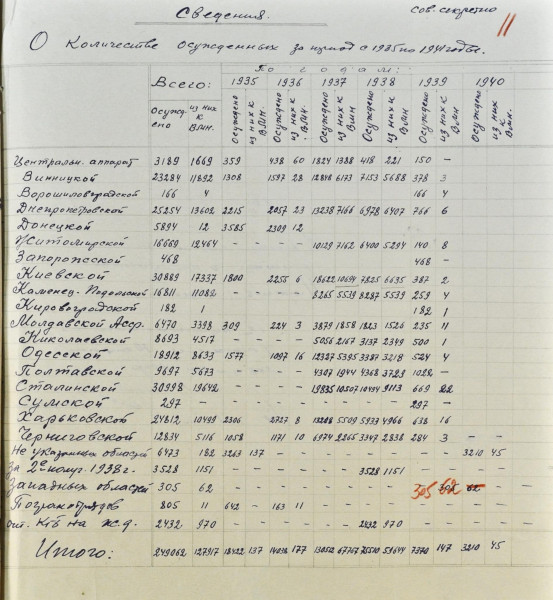 Сведения. Сов. секретно
11
О количестве осужденных за период с 1935 по 1941 годы.
По годам:
Всего: 1935 1936 1937 1938 1939 1940
Осуждено из них к ВМН. Осуждено из них к ВМН. Осуждено из них к ВМН. Осуждено из них к ВМН Осуждено из них к ВМН Осуждено из них к ВМН. Осуждено из них к ВМН.
Центральн. аппарат 3189 1669 359 438 60 1824 1388 418 221 150 –
Винницкой 23284 11892 1308 1597 28 12848 6173 7153 5688 378 3
Ворошиловградской 166 4 166 4
Днепропетровской 25254 13602 2215 2057 23 13238 7166 6978 6407 766 6
Донецкой 5894 12 3585 2309 12
Житомирской 16669 12464 – – – – 10129 7162 6400 5294 140 8
Запорожской 468 468 –
Киевской 30889 17337 1800 2255 6 18622 10694 7825 6635 387 2
Каменец-Подольской 16811 11082 – – – – 8265 5539 8287 5539 259 4
Кировоградской 182 1 182 1
Молдавской Асср. 6470 3398 309 224 3 3879 1858 1823 1526 235 11
Николаевской 8693 4517 – – – – 5056 2167 3137 2349 500 1
Одесской 18912 8633 1577 1097 16 12327 5395 3387 3218 524 4
Полтавской 9697 5673 – – – – 4307 1944 4368 3729 1022 –
Сталинской 30998 19642 – – – – 19835 10507 10494 9113 669 22
Сумской 297 – – – – – – – 297 –
Харьковской 24812 10499 2306 2727 8 13208 5509 5933 4966 638 16
Черниговской 12834 5116 1058 1171 10 6974 2265 3347 2838 284 3 – –
Не указанных областей 6473 182 3263 137 3210 45
За 2е полуг. 1938 г. 3528 1151 – – – – 3528 1151 – –
Западных областей 305 62 – – – – 305 62 305 62
Погранотрядов 805 11 642 – 163 11 – – – –
от. КГБ на ж.д. 2432 970 – – – – 2432 970 – –
Итого: 249062 127917 18422 137 14038 177 67767 59644 7370 147 3210 45